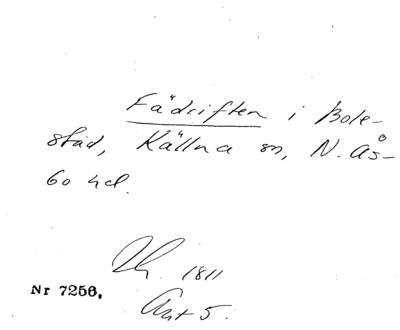 Fädriften i Bole-
stad, Källna sn, N. Ås-
bo hd.
1811
Nr 7256,
Art 5.